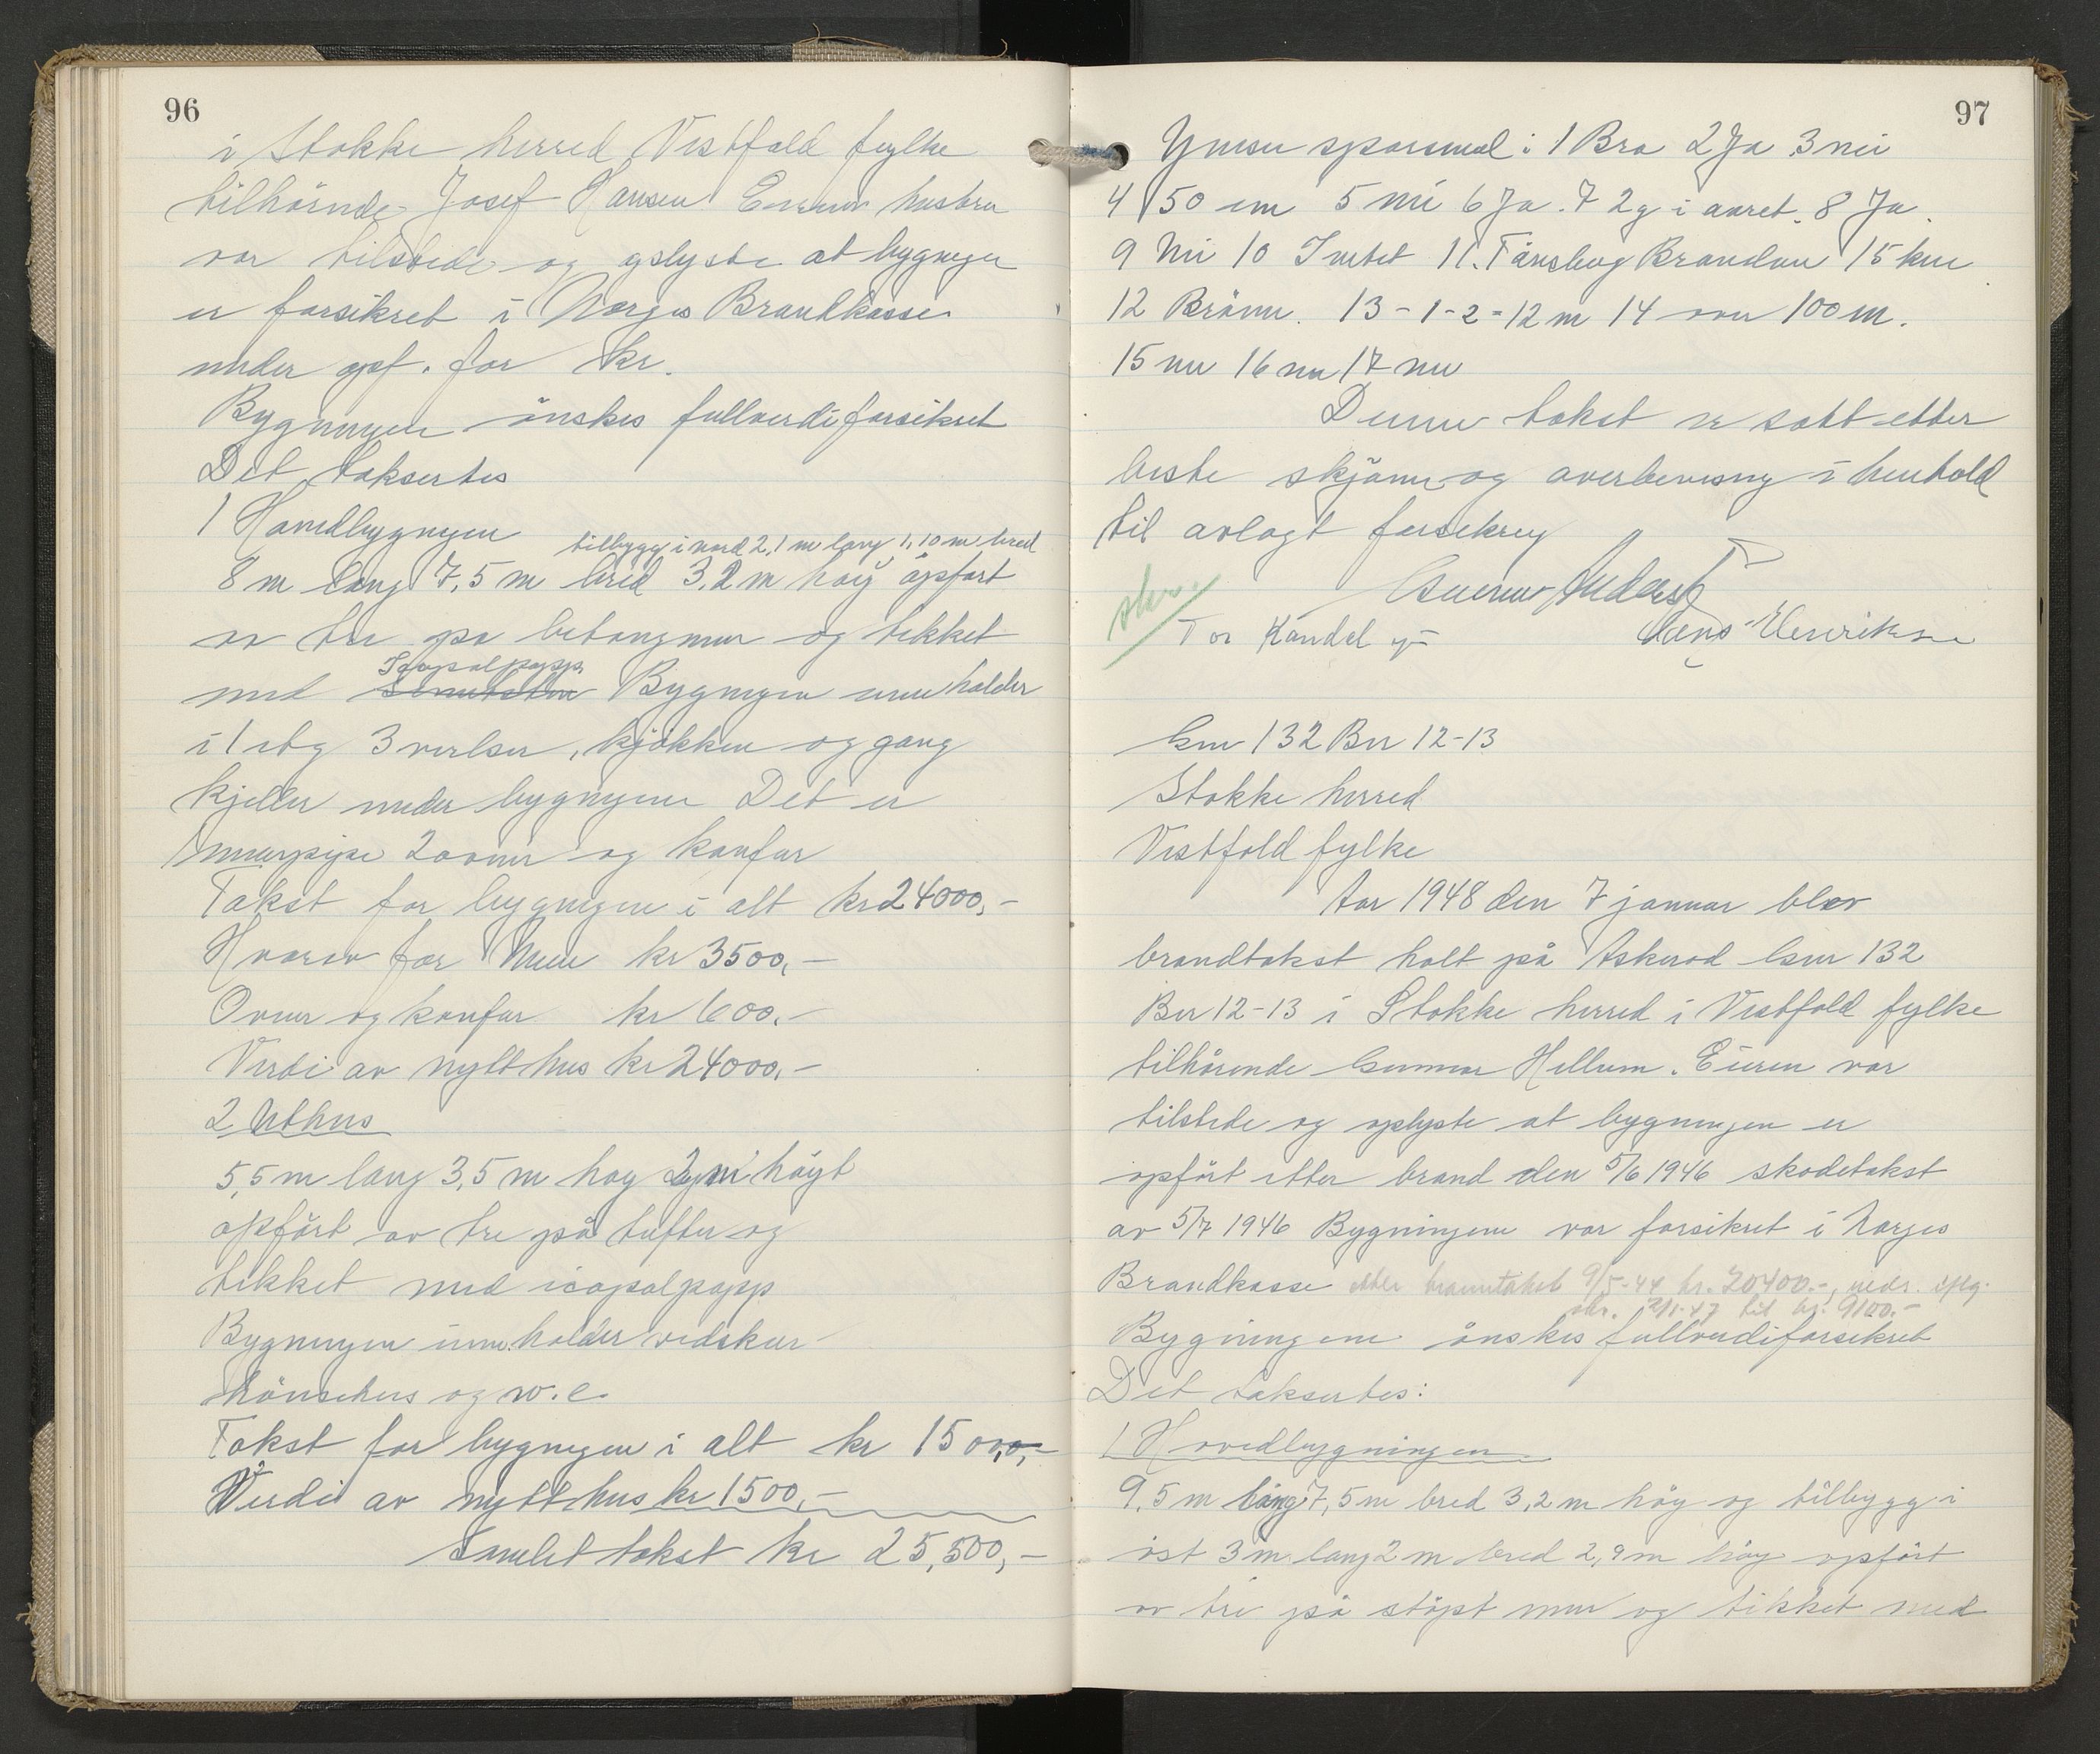 96
i Stokke herred Vestfold fylke
tilhörnde Josef Hansen Eieren hustru
var tilstede og oplyste at bygngen
er forsikret i Norges Brandkasse
under opf. for kr.
Bygnngen önskes fullverdiforsikret
Det taksertes
1 Hovedbygngen
tilbygg i nord 2,1 m lang 1,10 m bred
8 m lang 7,5 m bred 3,2 m höy opfört
av tre på betongmur og tekket
Icopalpapp
med Sementsten Bygngen inneholder
i 1 etg 3 verlser, kjökken og gang
kjeller under bygngen Det er
1 murpipe 2 ovner og komfur
Takst for bygngen i alt kr 24000,-
Hvorav for Mur kr 3500,-
Ovner og komfur kr 600,-
Verdi av nytt hus kr 24000,-
2 Uthus
5,5 m lang 3,5 m hög 2 m högt
opfört av tre på tufter og
tekket med icopalpapp
Bygnngen inneholder vedskur
hönsehus og w.c.
Takst for bygngen i alt kr 1500,-
Verdi av nytt hus kr 1500,-
Samlet takst kr 25,500,-
97
Ymse sporsmal: 1 Bra 2 Ja 3 nei
4 150 cm 5 nei 6 Ja. 7 2 g i aaret. 8 Ja.
9 Nei 10 Intet 11. Tönsberg Brandv 15 km
12 Brönn. 13 - 1 - 2 = 12 m 14 over 100 m.
15 nei 16 nei 17 nei
Denne takst er satt etter
beste skjönn og overbevisng i henhold
til avlagt forsikrng
skr.
Gunnar Anders
Tor Kandal Hans Henriksen
Gnr 132 Bnr 12-13
Stokke herred
Vestfold fylke
Aar 1948 den 7 januar blev
brandtakst holt på Askerod Gnr 132
Bnr 12-13 i Stokke herred i Vestfold fylke
tilhörende Gunnar Hellum. Eieren var
tilstede og oplyste at bygnngen er
opfört etter brand den 5/6 1946 skadetakst
av 5/7 1946 Bygningene var forsikret i Norges
Brandkasse etter branntakst 9/5-44 kr. 20400.-, neds. iflg.
skr. 2/1-47 til kr. 9100.-
Bygningene önskes fullverdiforsikret
Det taksertes:
1 Hovedbygningen
9,5 m lang 7,5 m bred 3,2 m höy og tilbygg i
öst 3 m lang 2 m bred 2,9 m höy opfört
av tre på stöpt mur og tekket med